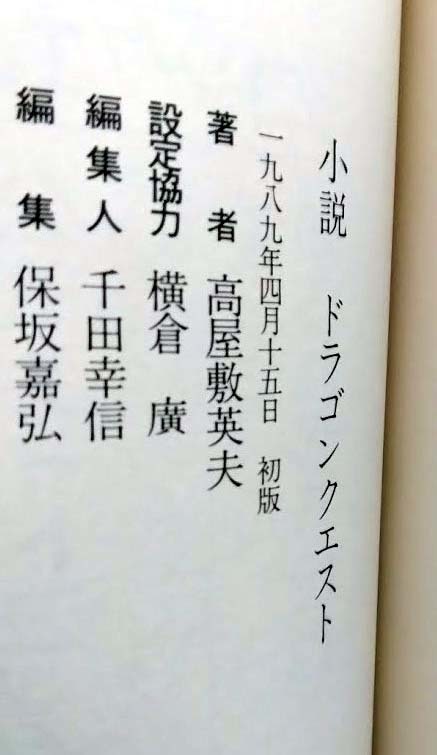 小説　ドラゴンクエスト
一九八九年四月十五日　初版
著　者　高屋敷英夫
設定協力　横倉　廣
編集人　千田幸信
編　集　保坂嘉弘